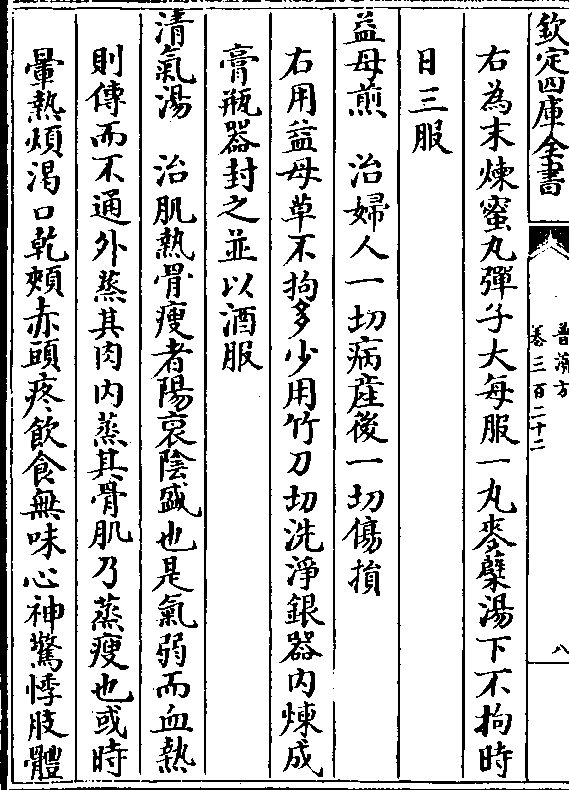 欽定四庫全書
普濟方
卷三百二十二
八
右為末煉蜜丸彈子大每服一丸麥蘖湯下不拘時
日三服
益母煎 治婦人一切病産後一切傷損
右用益母草不拘多少用竹刀切洗淨銀器内煉成
膏瓶器封之並以酒服
清氣湯 治肌熱骨瘦者陽衰陰盛也是氣弱而血熱
則傳而不通外蒸其肉内蒸其骨肌乃蒸瘦也或時
暈熱煩渴口乾頰赤頭疼飲食無味心神驚悸肢體